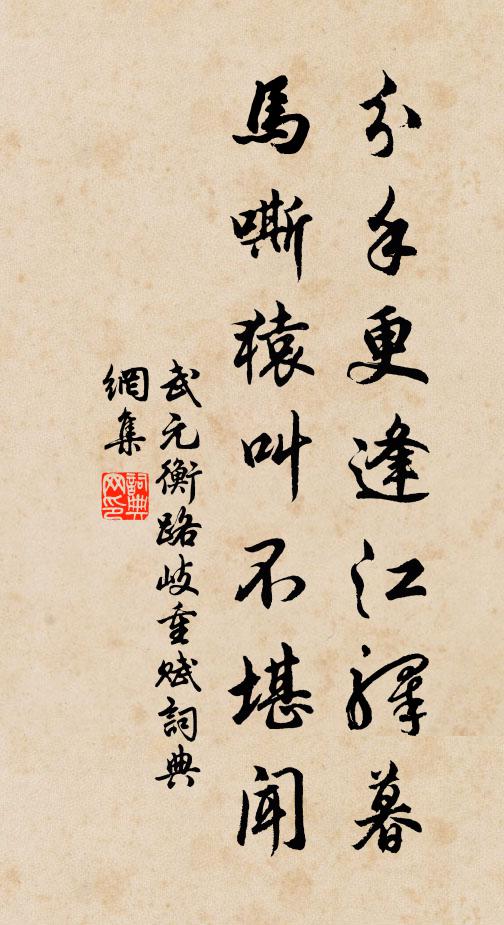 分手更逢江驛暮
馬嘶猿叫不堪聞
武元衡路岐重賦詞典
網集
詞典
网印